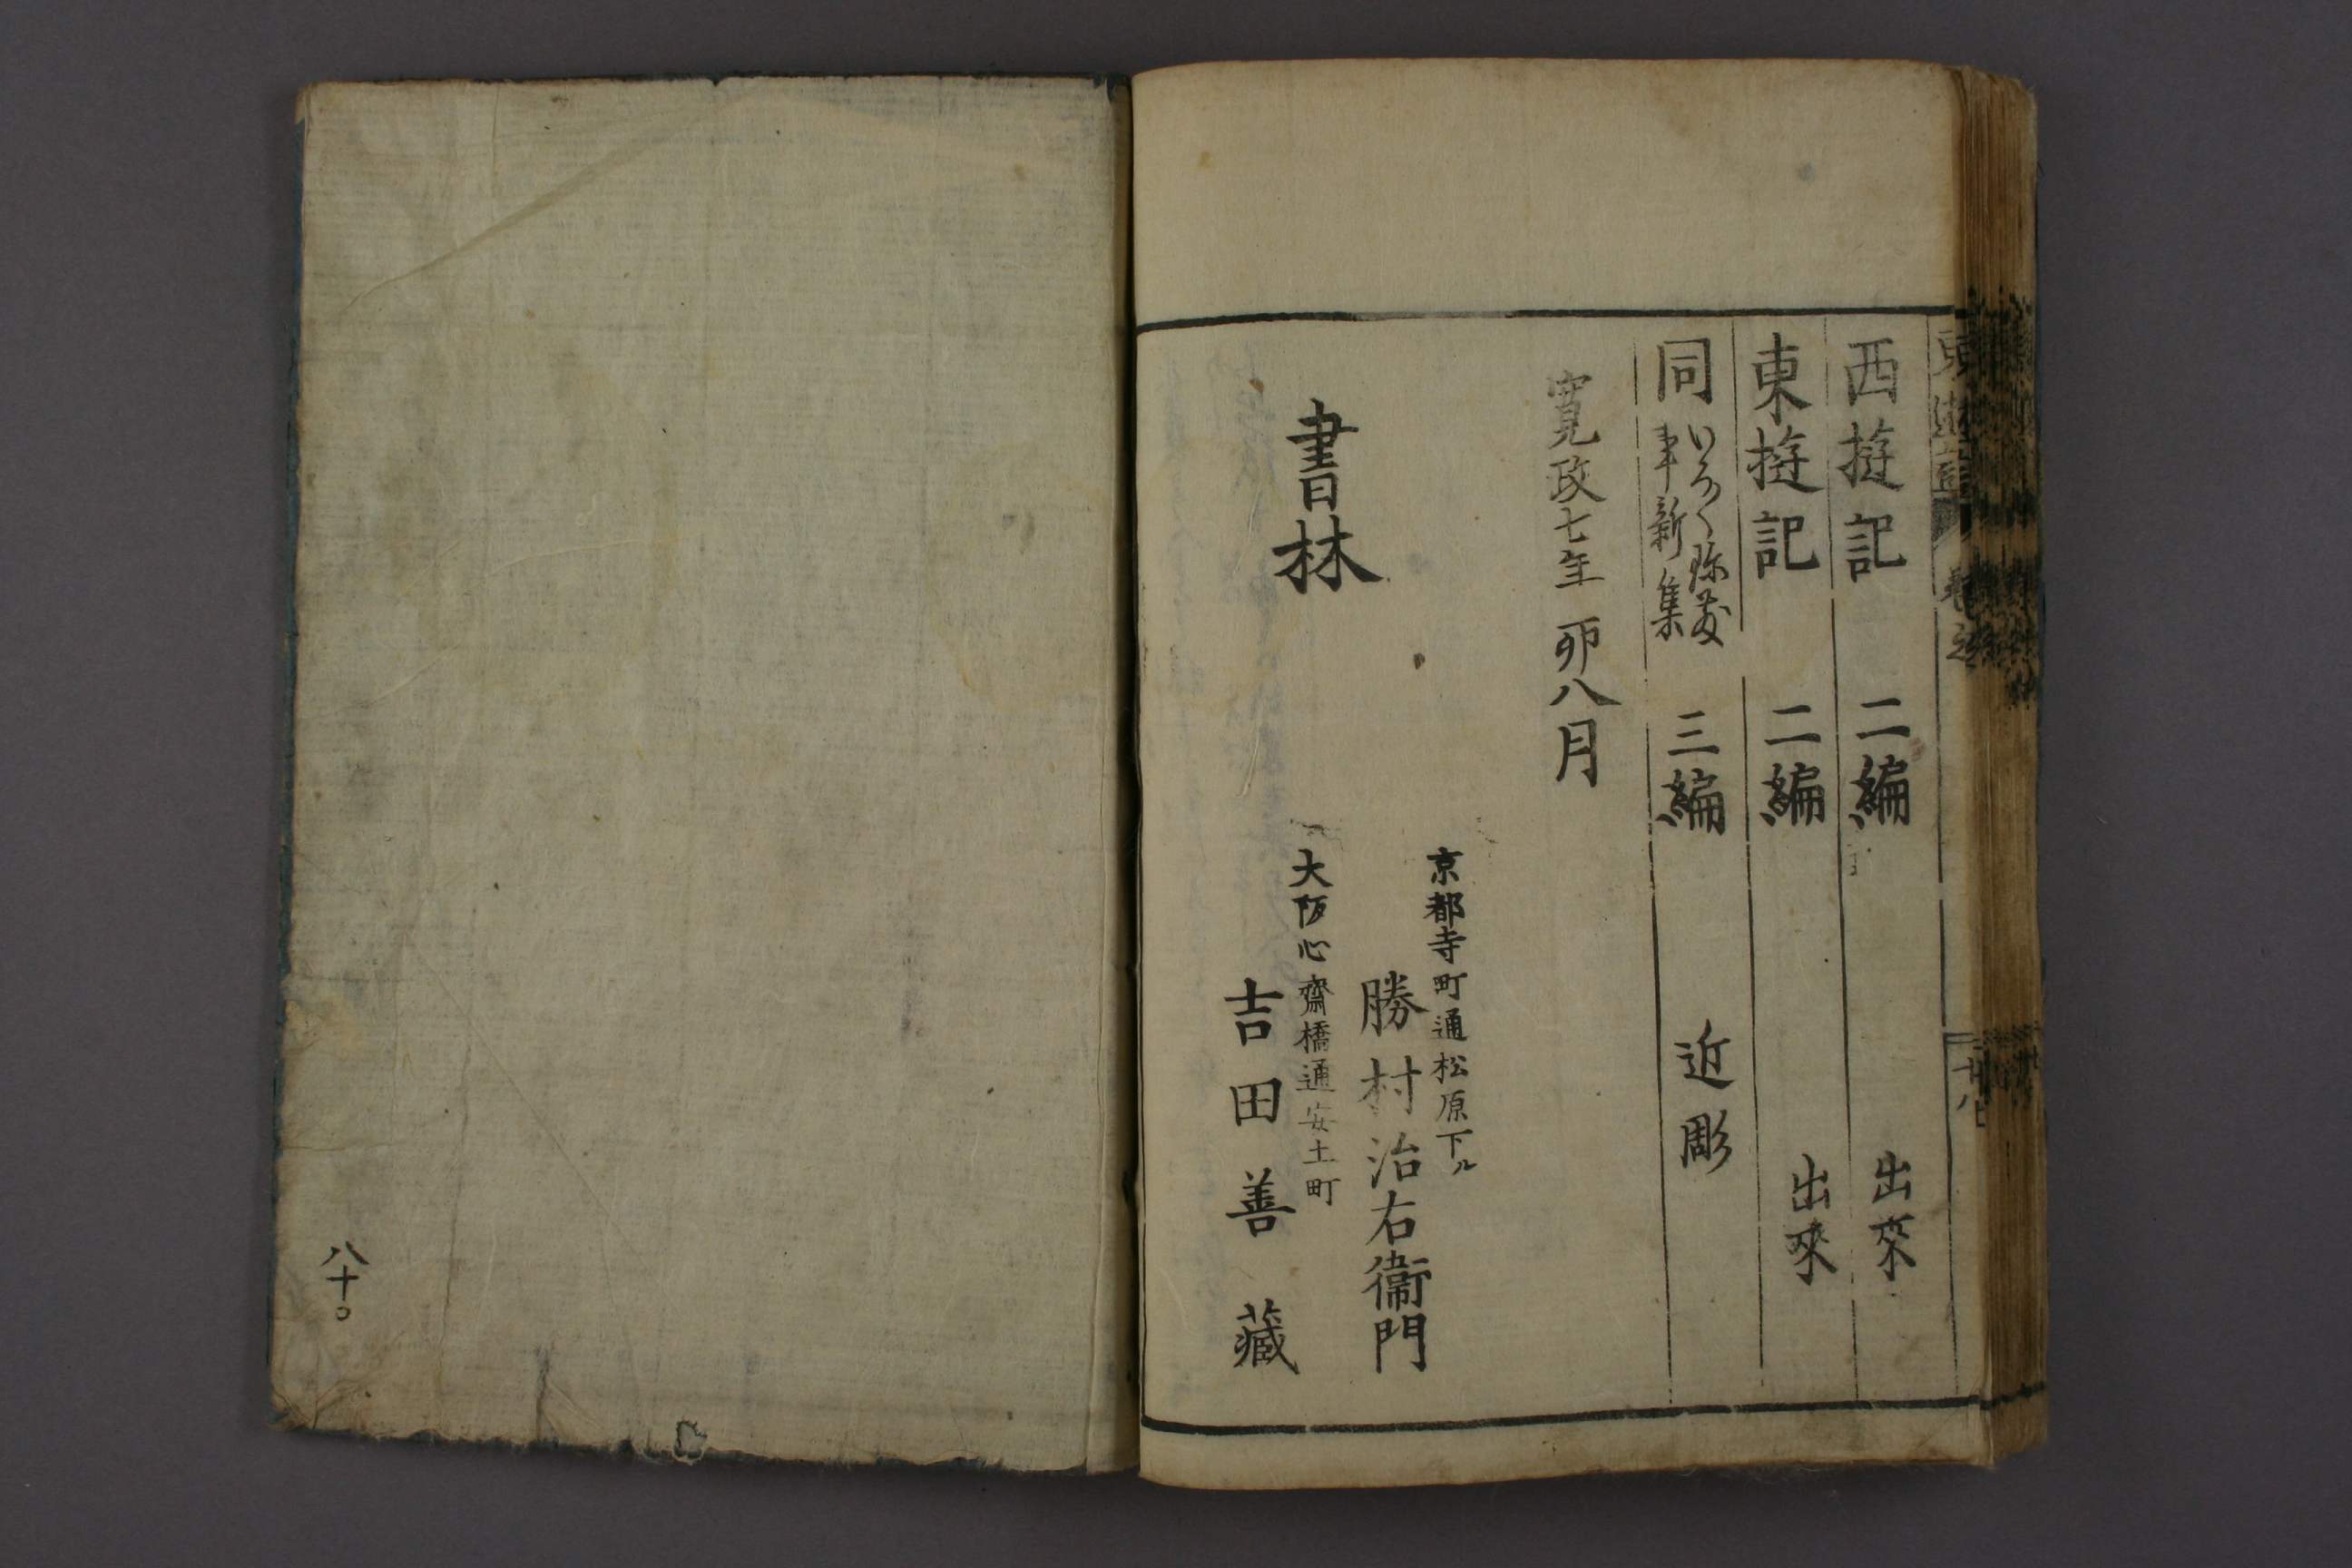 西遊記 二編 出來
東遊記 二編 出來
同 いろ〱珎敷事新集 三編 近彫
寛政七年 卯八月
書林
京都寺町通松原下ル
勝村治右衞門
大阪心齋橋通安土町
吉田善藏
八十